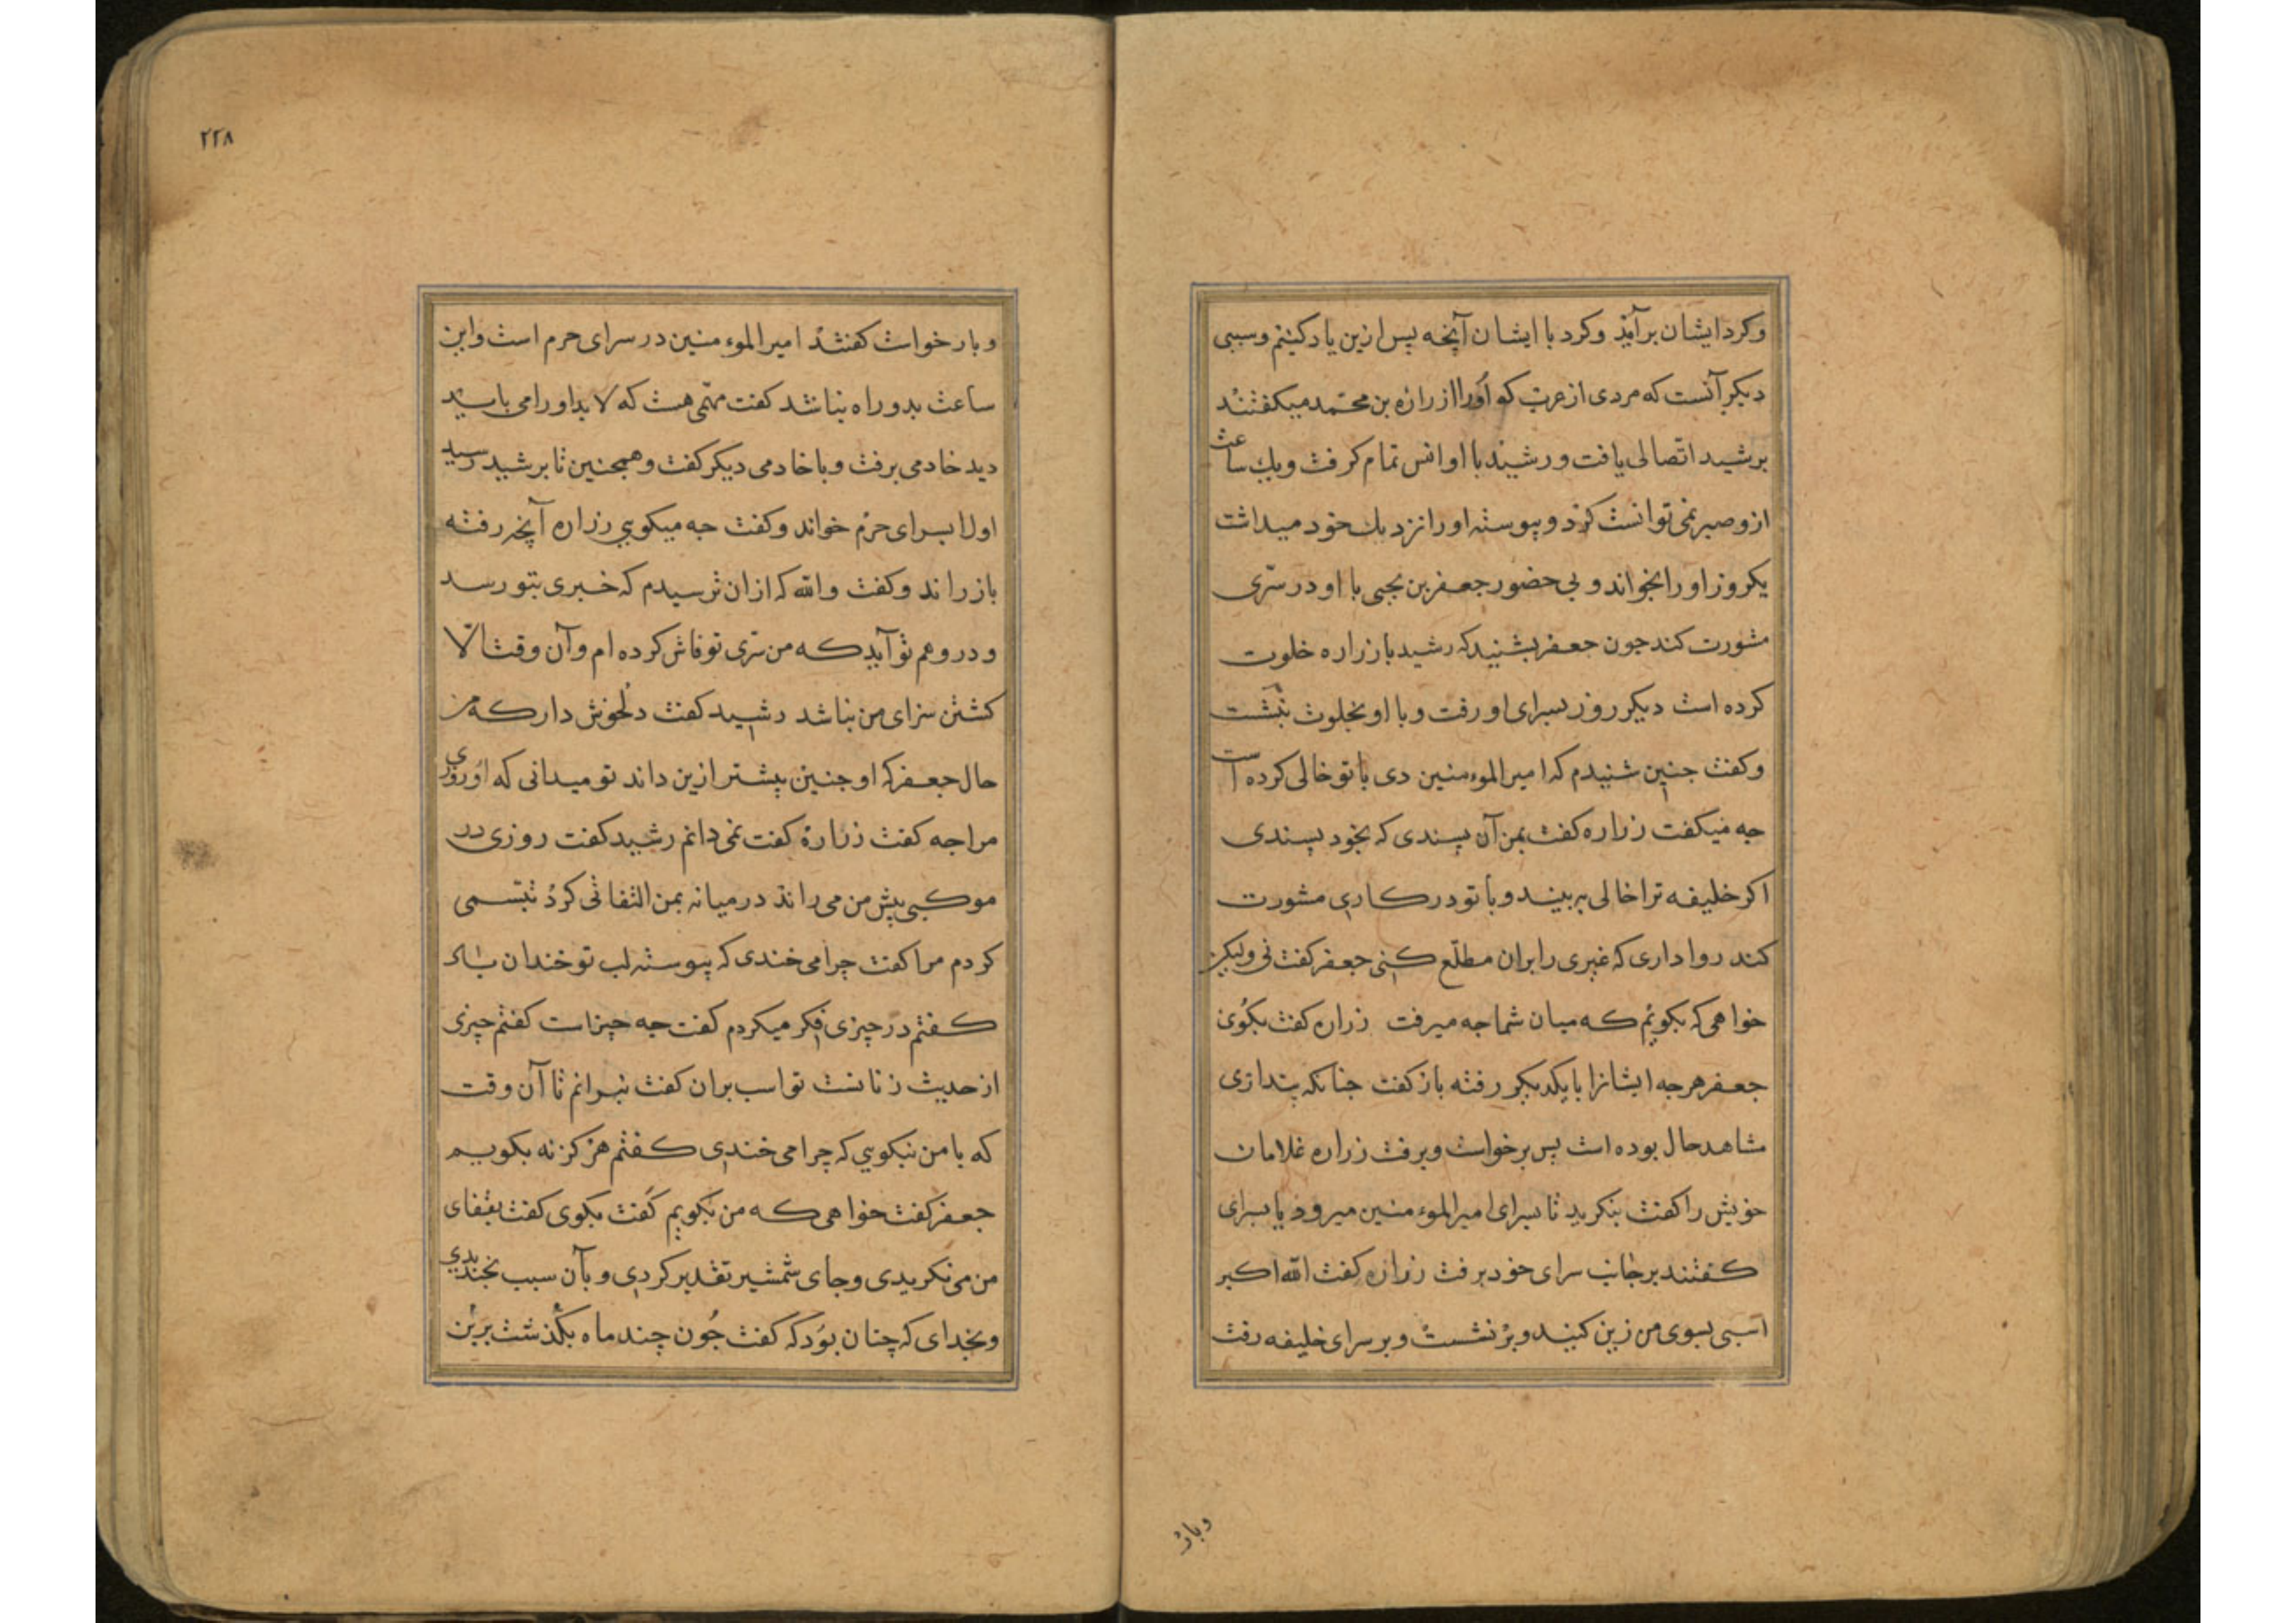 وکرد ایشان برآید وکرد با ایشان آنچه پس ازین یاد کنیم وسببی
دیکر آنست که مردی از عرب کو اورا از زراره بن محمد میکفتند
برشید اتصالی یافت ورشید با او انس تمام کرفت ویك ساعت
ازو صبر نمی توانست کرد وپیوسته اورا نزدیك خود میداشت
یکروز اورا بخواند وبی حضور جعفر بن یحیی با او در سرّی
مشورت کند جون جعفر بشنید که رشید با زراره خلوت
کرده است دیکر روز بسرای او رفت وبا او بخلوت بنشست
وکفت جنین شنیدم که امیر الموءمنین دی با تو خالی کرده است
جه میکفت زراره کفت بمن آن پسندی که بخود پسندی
اکر خلیفه ترا خالی به بیند وبا تو در کاری مشورت
کند روا داری که غیری را بران مطلّع کنی جعفر کفت نی ولیکن
خواهی که بکویم که میان شما جه میرفت زراره کفت بکوی
جعفر هرجه ایشانرا با یکدیکر رفته باز کفت جنانکه پنداری
مشاهد حال بوده است پس برخواست وبرفت زراره غلامان
خویش را کفت بنکرید تا بسرای امیر الموءمنین میرود یا بسرای
کفتند برجانب سرای خود برفت زراره کفت الله اکبر
اسبی بسوی من زین کنید وبر نشست وبر سرای خلیفه رفت
وبار
٢٢٨
وبار خواست کفتند امیر الموءمنین در سرای حرم است واین
ساعت بدو راه نباشد کفت مهّمی هست که لابد اورا می باید
دید خادمی برفت وبا خادمی دیکر کفت وهمجنین تا برشید رسید
اورا بسرای حرم خواند وکفت جه میکویی زراره آنچه رفته
باز راند وکفت والله که ازان ترسیدم که خبری بتو رسد
ودر وهم تو آید که من سّری تو فاش کرده ام وآن وقت الّا
کشتن سزای من نباشد رشید کفت دلخوش دار که من
حال جعفر که او جنین پیشتر ازین داند تو میدانی که او روزی
مرا جه کفت زراره کفت نمی دانم رشید کفت روزی در
موکبی پیش من می راند در میانه بمن التفاتی کرد تبسّمی
کردم مرا کفت چرا می خندی که پیوسته لب تو خندان باد
کفتم در چیزی فکر میکردم کفت جه جیز است کفتم چیزی
از حدیث زنانست تو اسب بران کفت نبرانم تا آن وقت
که با من نیکویی که چرا می خندی کفتم هرکز نه بکویم
جعفر کفت خواهی که من بکویم کفت بکوی کفت بقفای
من می نکریدی وجای شمشیر تقدیر کردی وبآن سبب بخندیدی
وبخدای که چنان بود که کفت جون چند ماه بکذشت برین